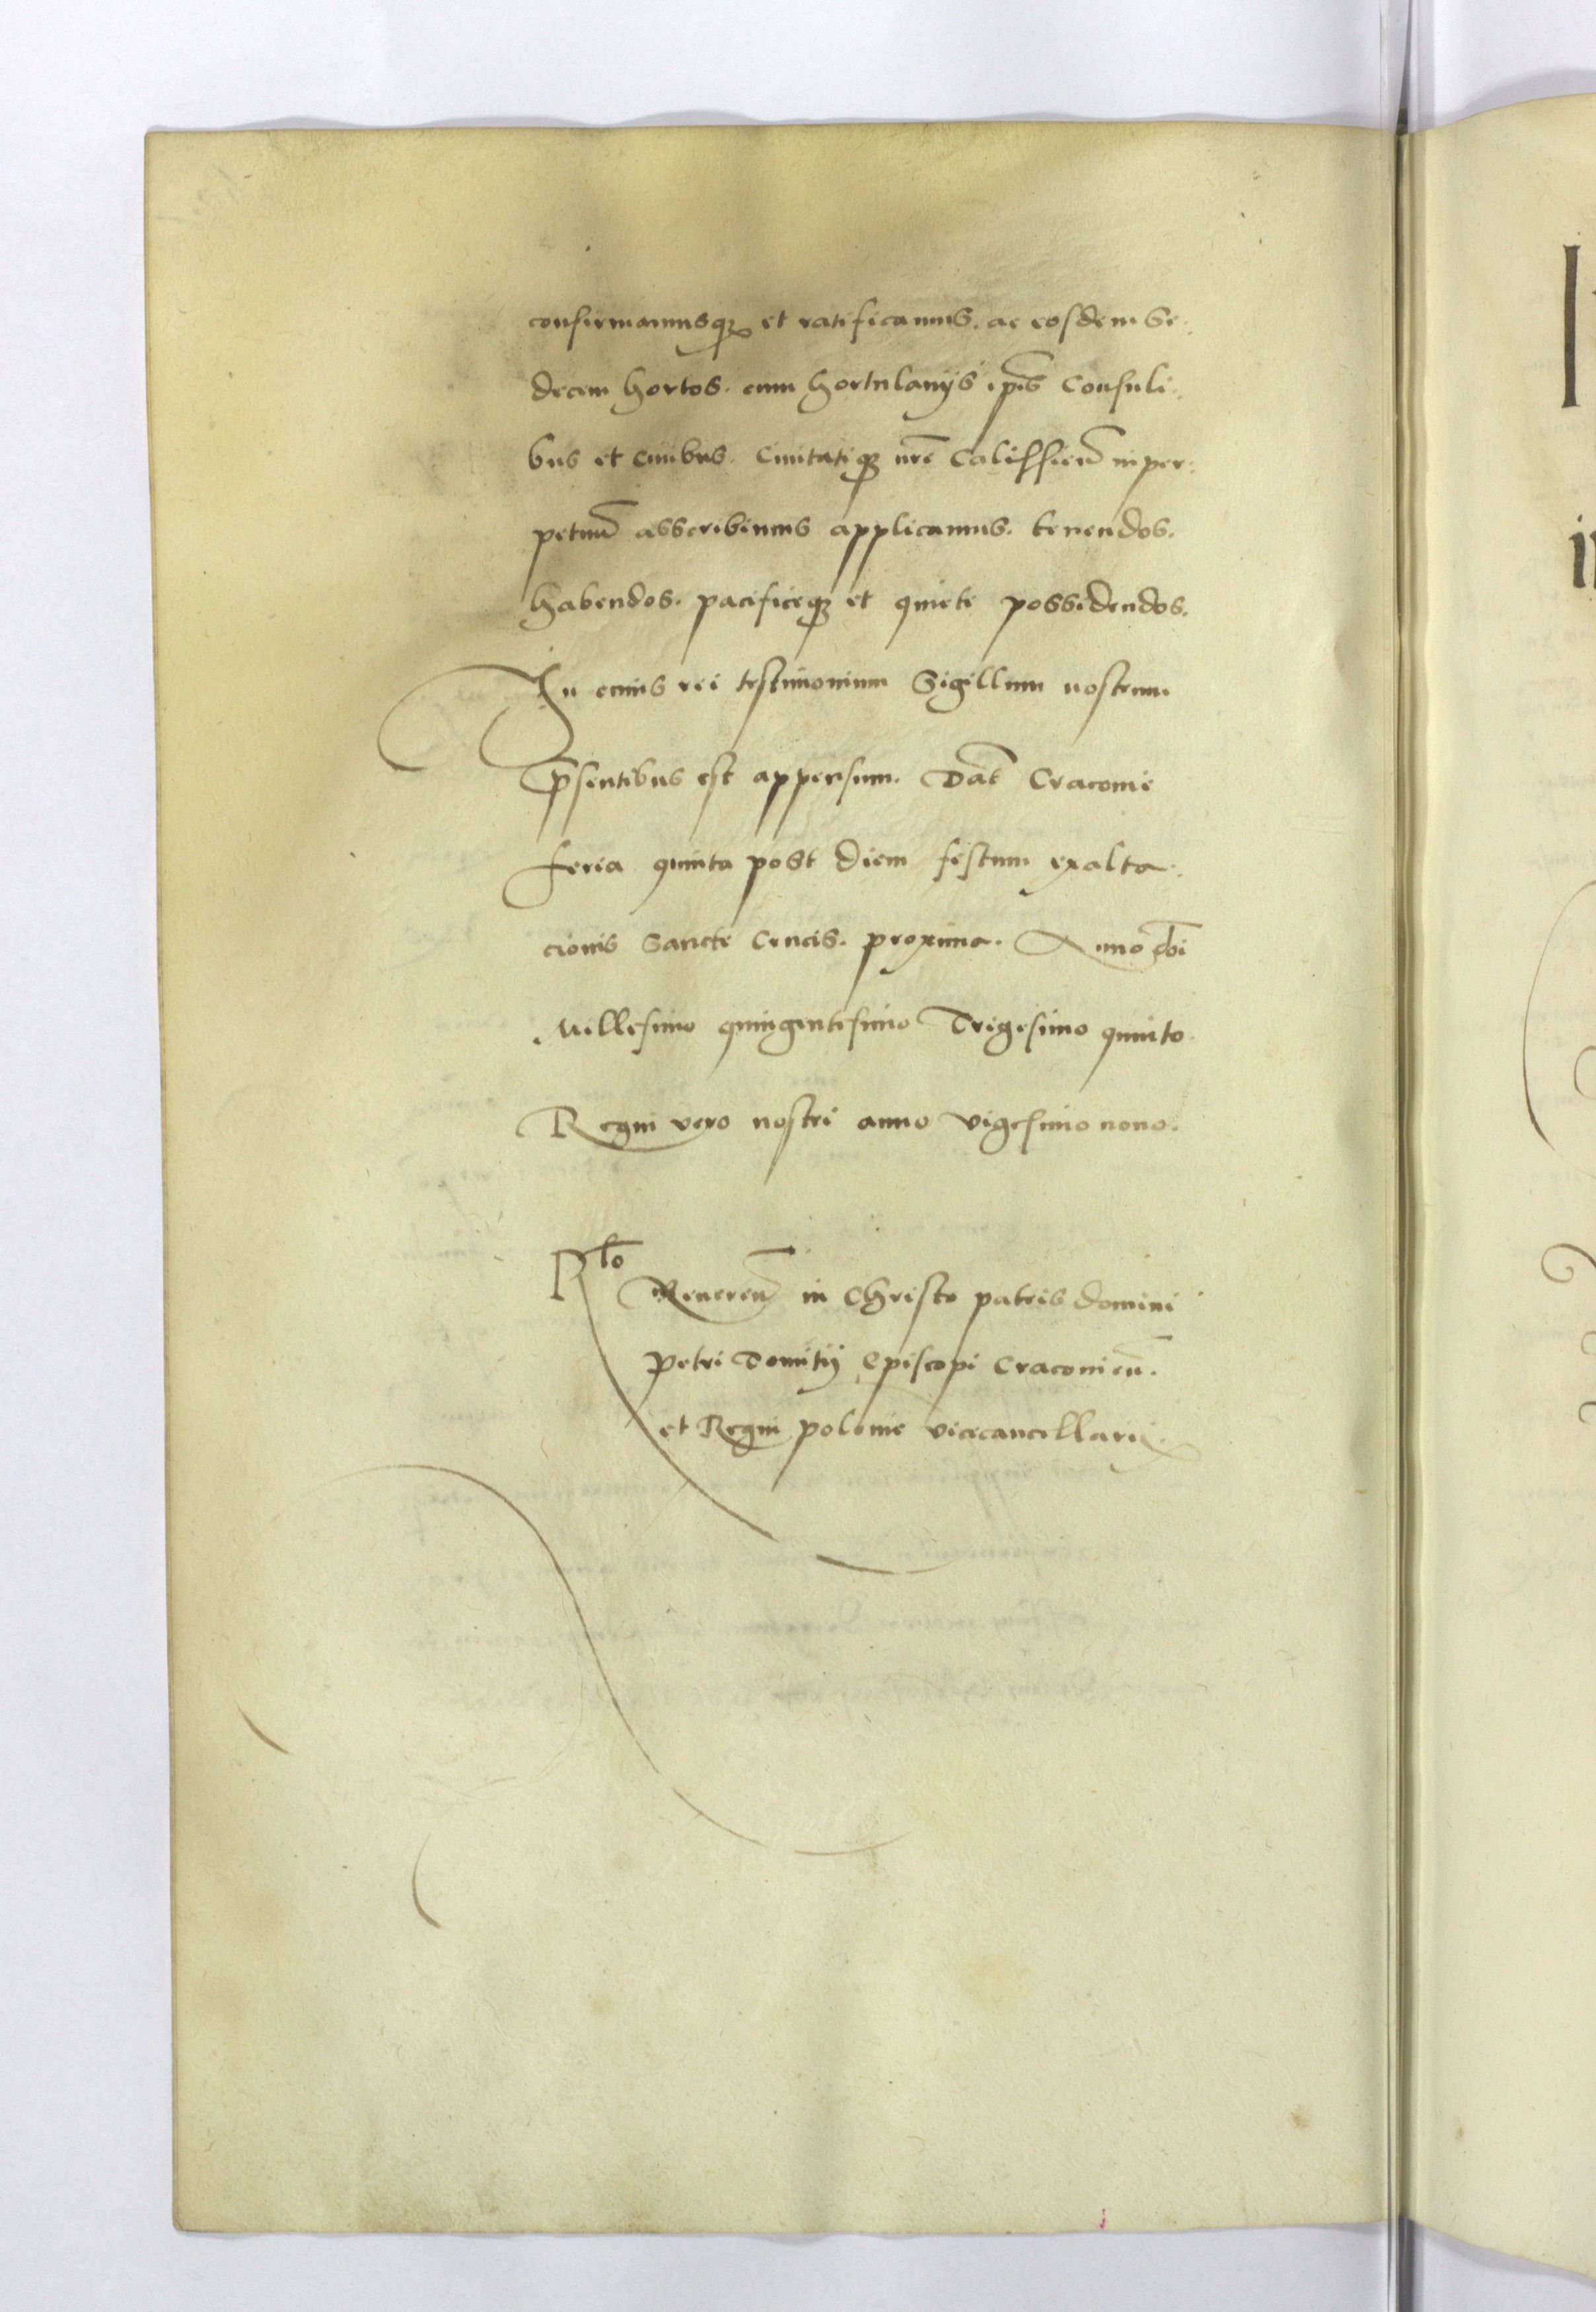 confirmamusq; et ratificamus. ac eosdem Se-
decem hortos. cum hortulanijs ip̄is Consuli-
bus et ciuibus. Ciuitatiq; nr̄e Calissien̄ in per-
petuū asscribimus applicamus. tenendos.
habendos. pacificeq; et quiete possidendos.
In cuius rei testimonium Sigillum nostrum
p̄sentibus est appensum. Dat̄ Cracouie
feria quinta post diem festum exalta-
cionis Sancte Crucis. proxima. Anno dn̄i
Millesimo quingentesimo Trigesimo quinto.
Regni vero nostri anno vigesimo nono.
Rl̄o
Reueren̄ in Christo patris domini
Petri Tomitij Episcopi Cracouien̄.
et Regni polonie vicecancellarij.